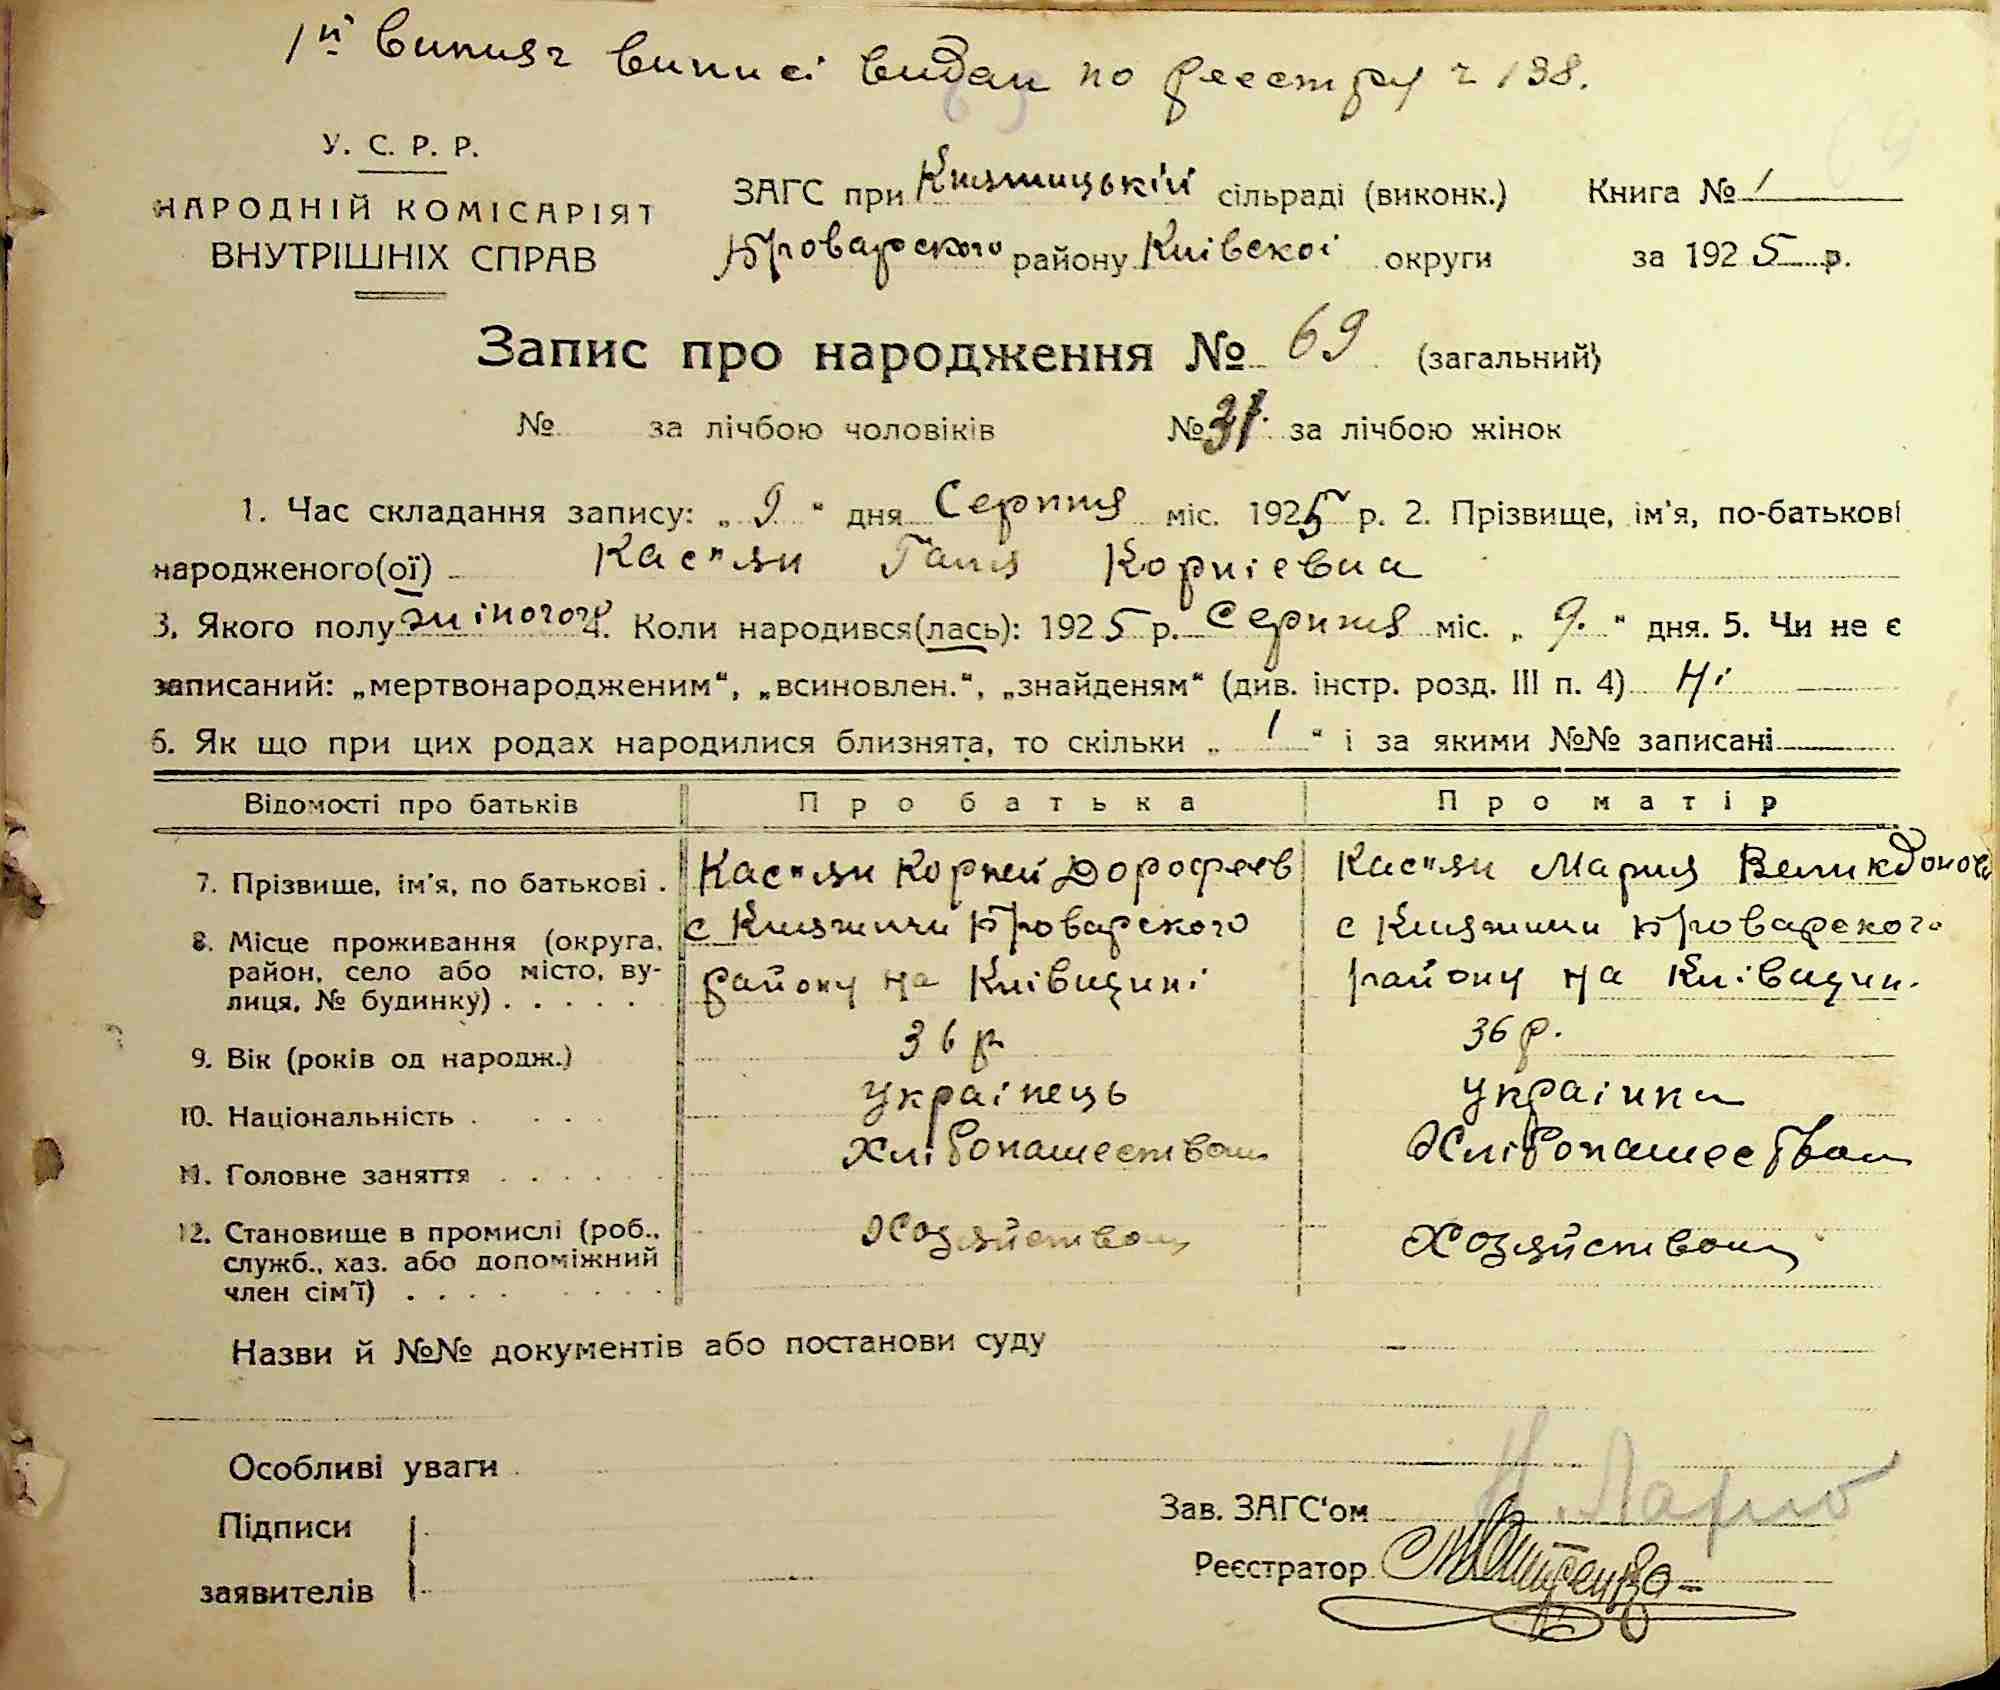 1й випуск виписі видан по реєстру ч 138.
У. С. Р. Р.
НАРОДНІЙ КОМІСАРІЯТ
ВНУТРІШНІХ СПРАВ
ЗАГС при Княжицькій сільраді (виконк.) Книга № 1
Броварского району Київскоі округи за 1925 р.
Запис про народження № 69 (загальний)
№ за лічбою чоловіків № 31 за лічбою жінок
1. Час складання запису: „ 9 “ дня Серпня міс. 1925 р. 2. Прізвище, ім'я, по-батькові
народженого(ої) Кас"ян Ганя Корніевна
3. Якого полу жіногого 4. Коли народився(лась): 1925 р. Серпня міс. „ 9. “ дня. 5. Чи не є
записаний: „мертвонародженим“, „всиновлен.“, „знайденям“ (див. інстр. розд. III п. 4) Ні
6. Як що при цих родах народилися близнята, то скільки „ 1 “ і за якими №№ записані
Відомості про батьків Про батька Про матір
7. Прізвище, ім'я, по батькові . Кас"ян Корней Дорофеев Кас"ян Мария
8. Місце проживання (округа, с Княжичи Броварского с Княжичи Броварског.
район, село або місто, ву- району на Київщині району на Київщин.
лиця, № будинку) . . . . .
9. Вік (років од народж.) 36 р 36 р.
10. Національність . . . . украінець украінка
11. Головне заняття . . . . . . Хлібопашеством Хлібопашеством
12. Становище в промислі (роб., Хозяйством Хозяйством
служб., хаз. або допоміжний
член сім'ї) . . . . . . . .
Назви й №№ документів або постанови суду
Особливі уваги
Підписи
заявителів
Зав. ЗАГС'ом
Реєстратор